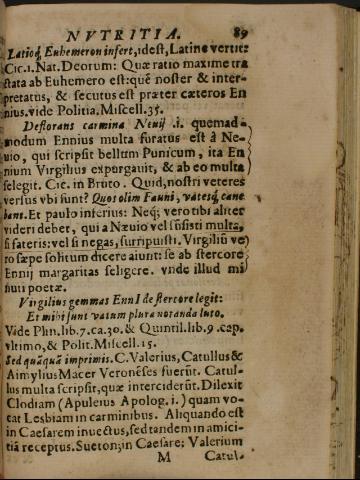 NVTRITIA. 89
Latioq́, Euhemeron infert, idest, Latine vertit:
Cic. 1. Nat. Deorum: Quæ ratio maxime tra
ctata ab Euhemero est: quē noster & inter-
pretatus, & secutus est præter cæteros En
nius. vide Politia. Miscell. 35.
Deflorans carmina Neuij .i. quemad-
modum Ennius multa furatus est â Ne-
uio, qui scripsit bellum Punicum, ita En
nium Virgilius expurgauit, & ab eo multa
selegit. Cic. in Bruto. Quid, nostri veteres
versus vbi sunt? Quos olim Fauni, vatesq́, cane
bant. Et paulo inferius: Neq; vero tibi aliter
videri debet, qui a Næuio vel sūsisti multa,
si fateris: vel si negas, surripuisti. Virgiliū ve
ro sæpe solitum dicere aiunt: se ab stercore
Ennij margaritas seligere. vnde illud mi
nuti poetæ.
Virgilius gemmas EnnI de stercore legit:
Et mihi sunt vatum plura notanda luto.
Vide Plin. lib. 7. ca. 30. & Quintil. lib. 9. cap.
vltimo, & Polit. Miscell. 15.
Sed quāquā imprimis. C. Valerius, Catullus &
Aimylius Macer Veronēses fuerūt. Catul-
lus multa scripsit, quæ interciderūt. Dilexit
Clodiam (Apuleius Apolog. i.) quam vo-
cat Lesbiam in carminibus. Aliquando est
in Caesarem inuectus, sed tandem in amici-
tiā receptus. Sueton; in Caesare: Valerium
M Catul-